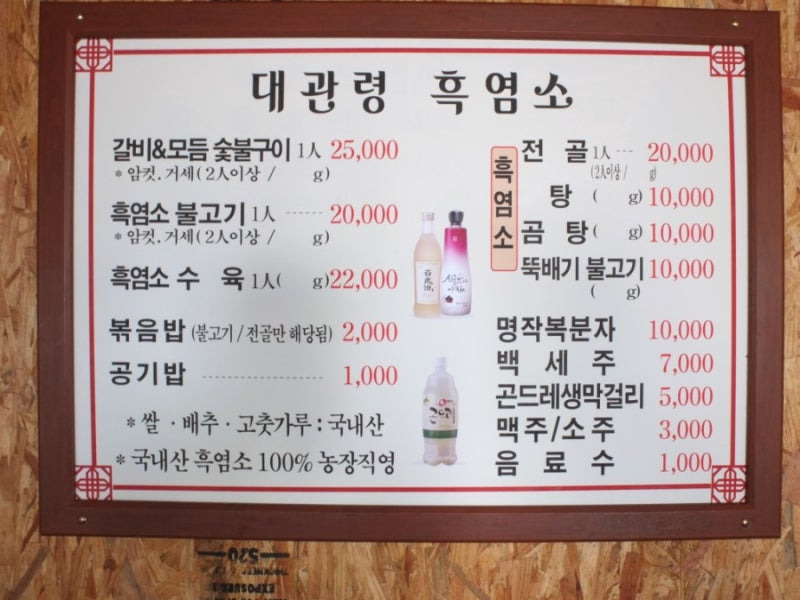 대관령 흑염소
갈비&모듬 숯불구이 1人 25,000
* 암컷.거세(2人이상 / g)
흑염소 불고기 1人 ------ 20,000
* 암컷.거세(2人이상 / g)
흑염소 수 육 1人( g) 22,000
볶음밥 (불고기/전골만 해당됨) 2,000
공기밥 ------------------ 1,000
* 쌀 · 배추 · 고춧가루 : 국내산
* 국내산 흑염소 100% 농장직영
흑염소
전 골 1人 --- 20,000
(2人이상 / g)
탕 ( g) 10,000
곰 탕 ( g) 10,000
뚝배기 불고기 10,000
( g)
명작복분자 10,000
백 세 주 7,000
곤드레생막걸리 5,000
맥주/소주 3,000
음 료 수 1,000
百歲酒
곤드레
520
EXPOSURE 1